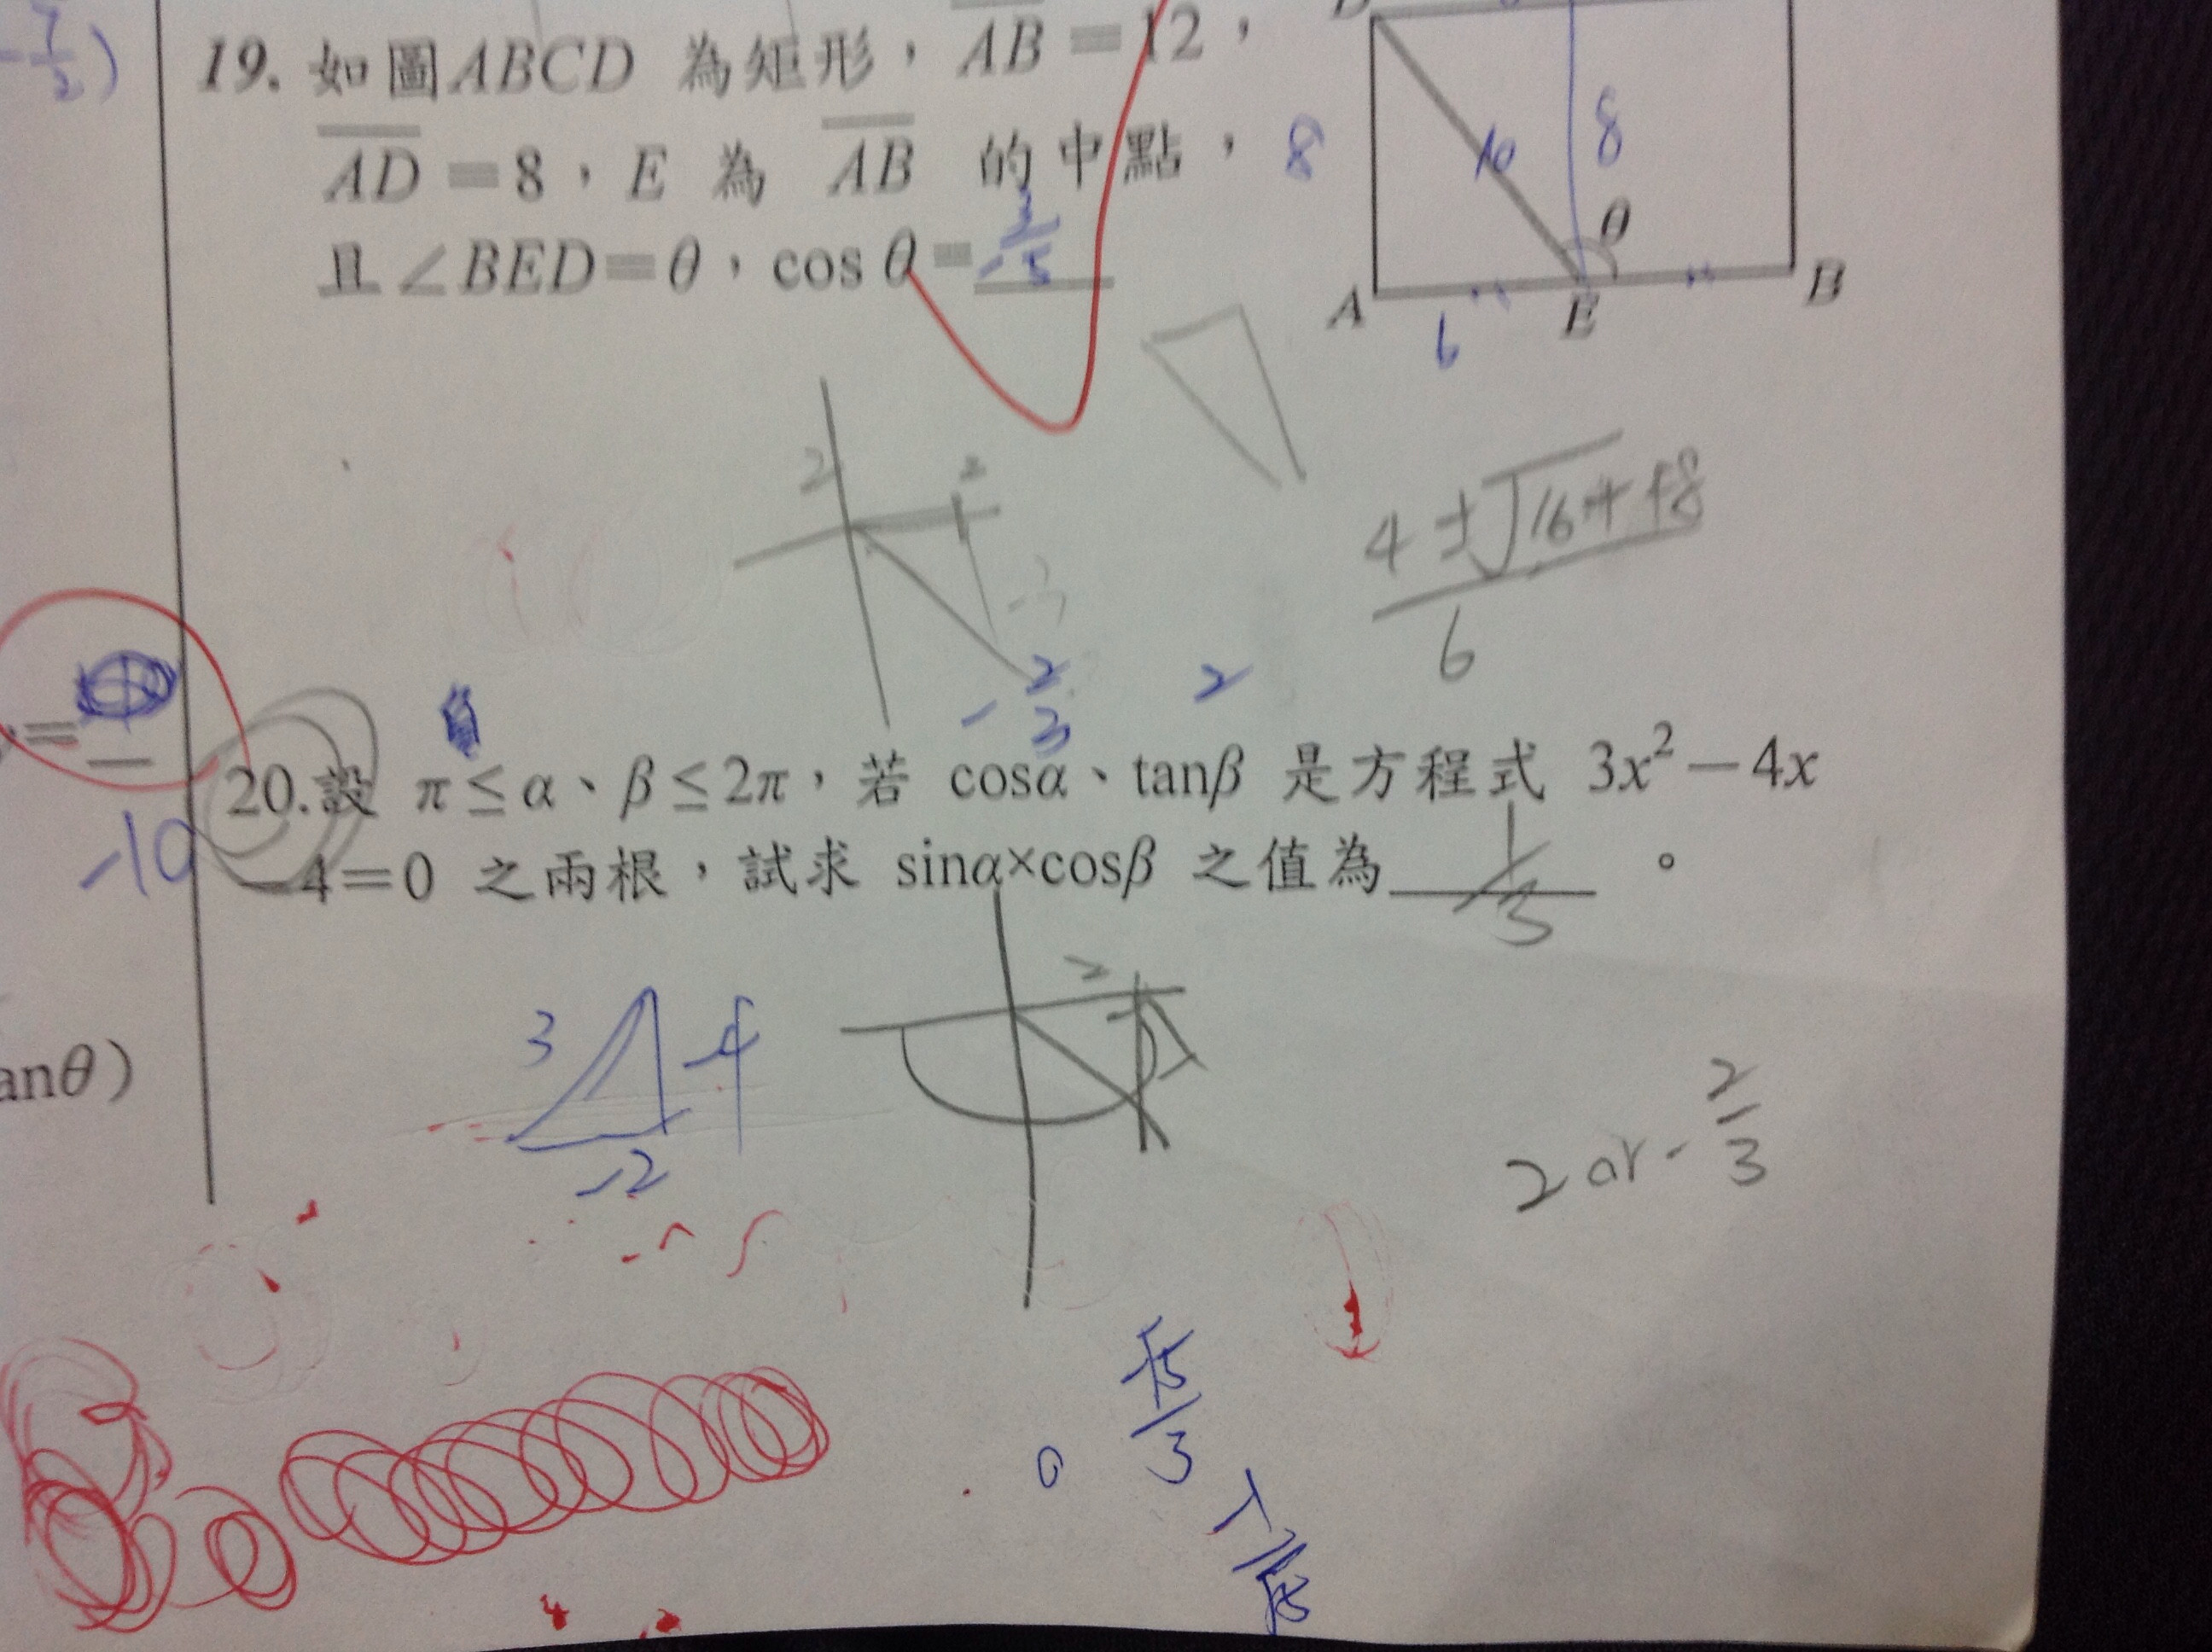 -7/2)
19. 如圖ABCD 為矩形，AB=12，
AD=8，E 為 AB 的中點，
且∠BED=θ，cos θ= -3/5
8
10
8
θ
A
E
B
6
2
2
4±√16+48
6
-2/3
2
=
-10
20.設 π≤α、β≤2π，若 cosα、tanβ 是方程式 3x²－4x
－4=0 之兩根，試求 sinα×cosβ 之值為 1/3 。
anθ)
3
-4
-2
2
2 or -2/3
√5/3